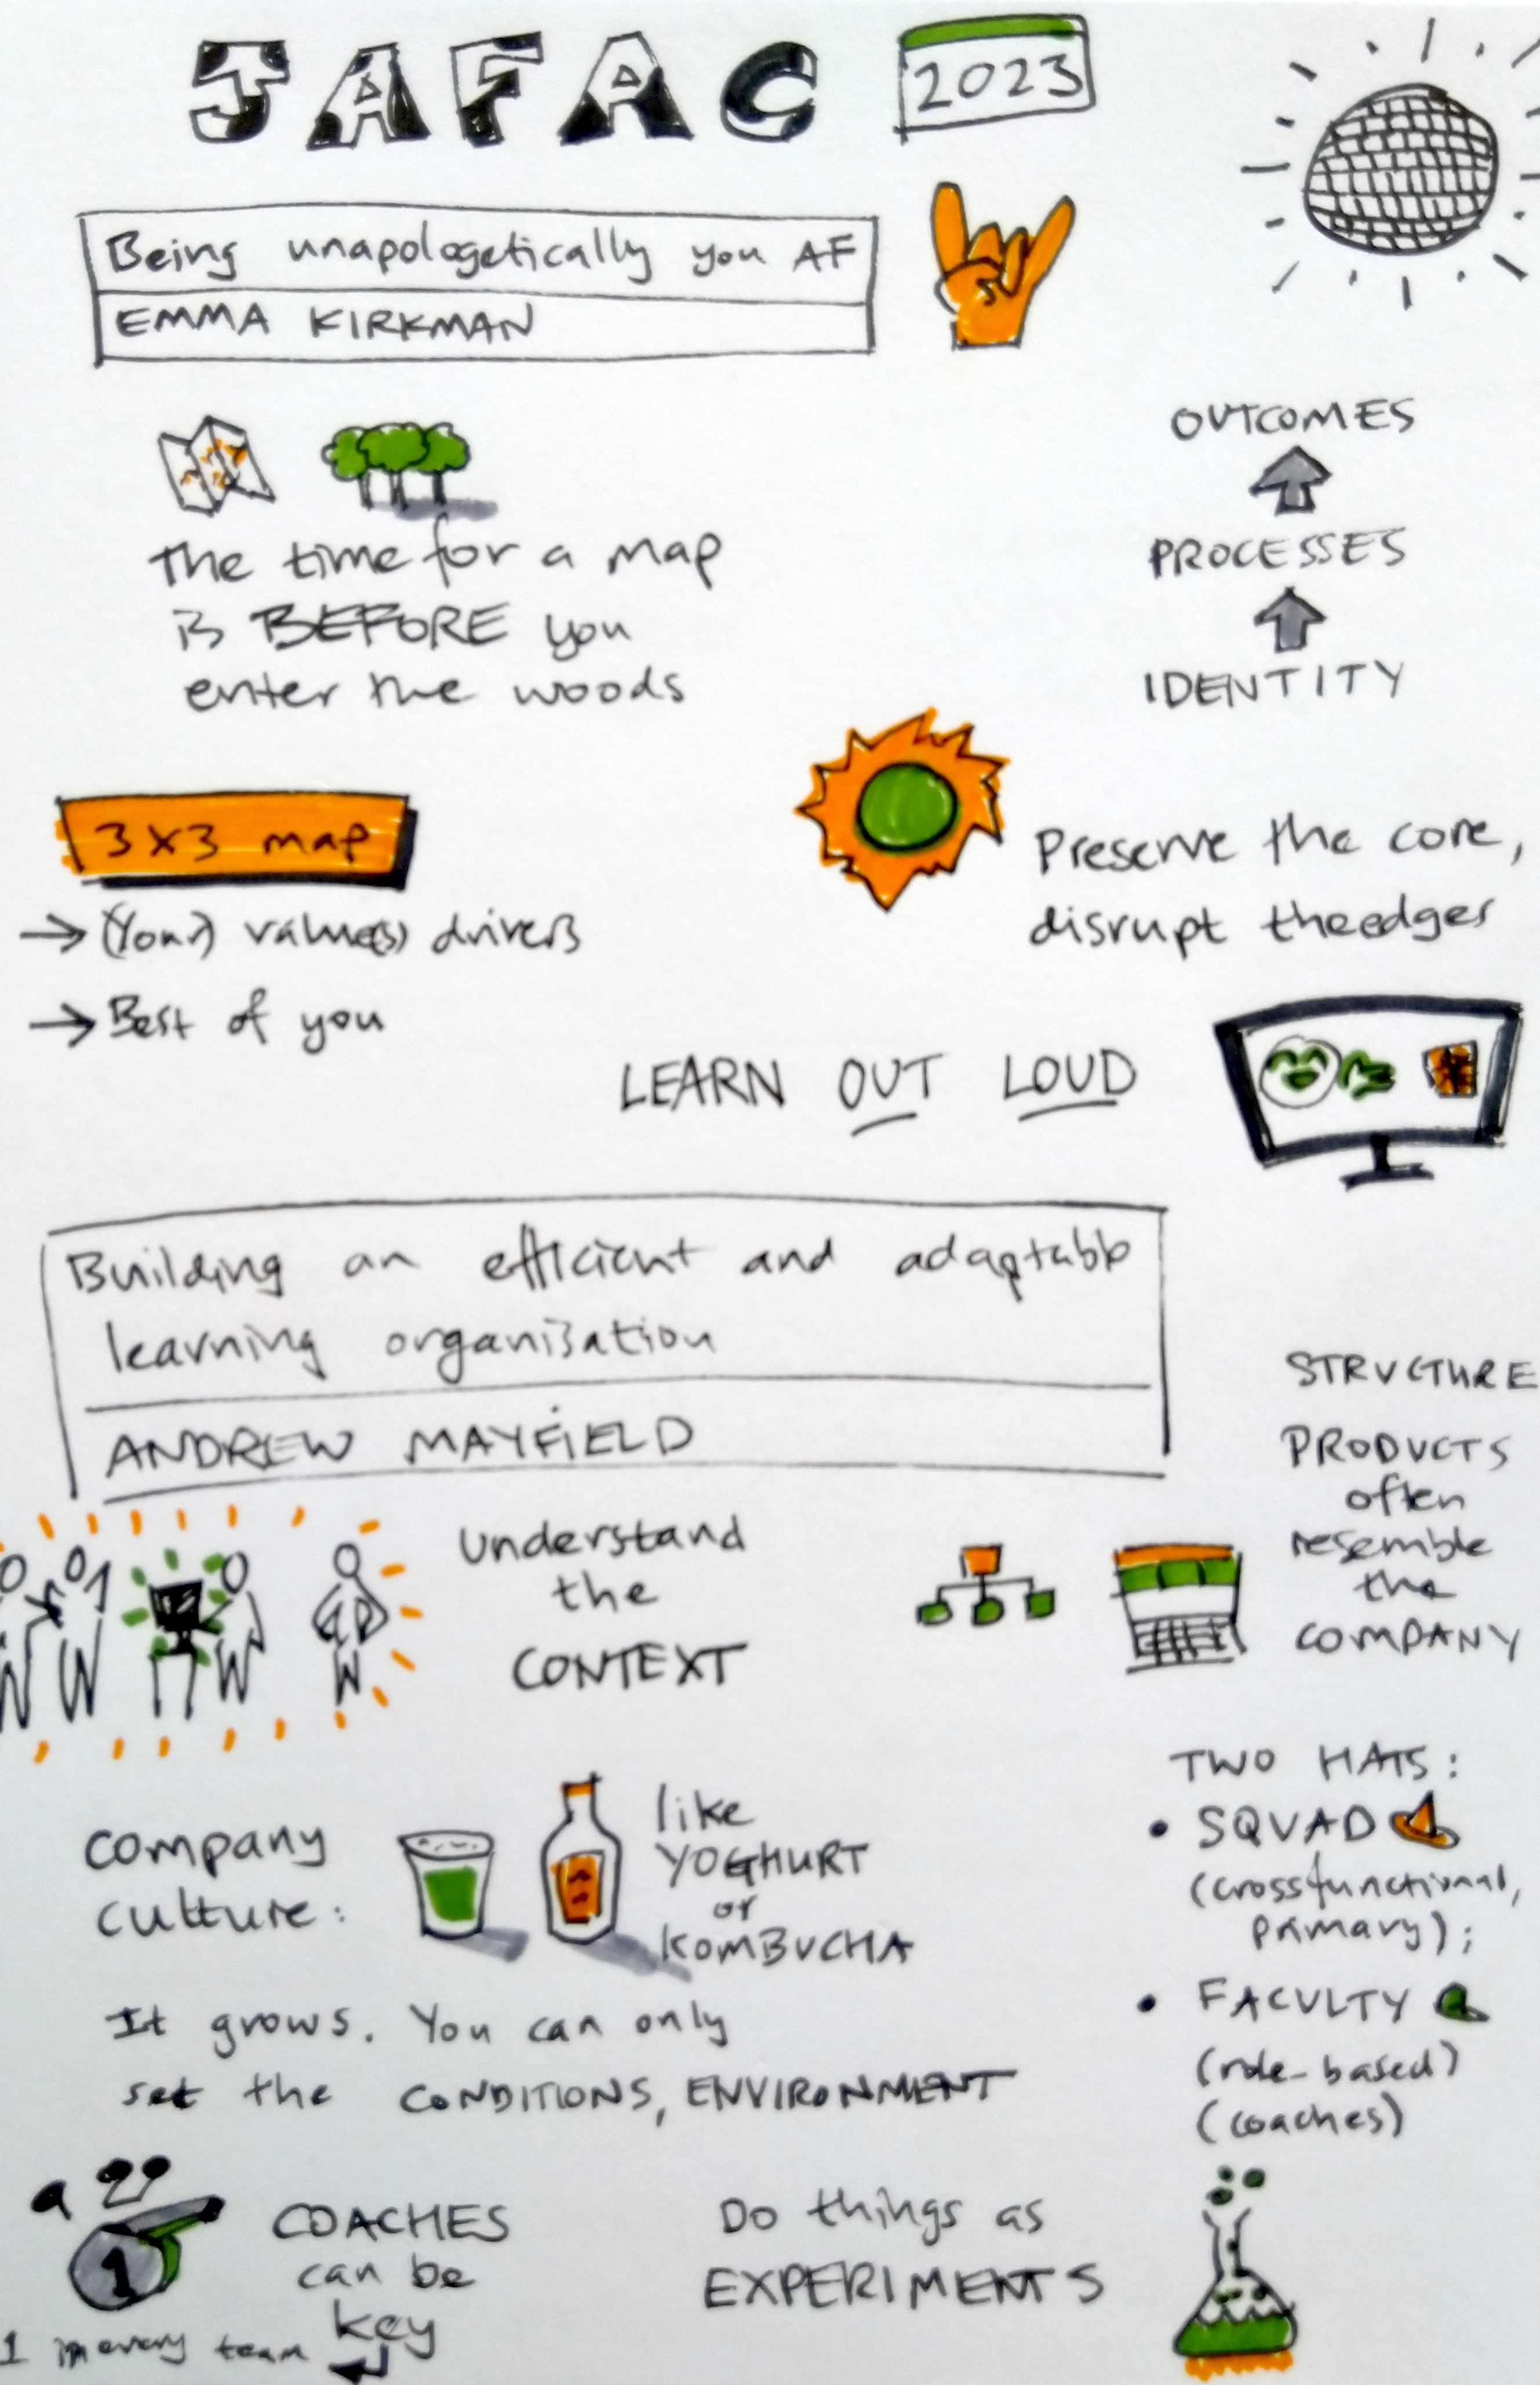 JAFAC 2023
Being unapologetically you AF
EMMA KIRKMAN
The time for a map
is BEFORE you
enter the woods
OUTCOMES
PROCESSES
IDENTITY
3x3 map
→ (Your) value(s) drivers
→ Best of you
Preserve the core,
disrupt the edges
LEARN OUT LOUD
Building an efficient and adaptable
learning organisation
ANDREW MAYFIELD
Understand
the
CONTEXT
STRUCTURE
PRODUCTS
often
resemble
the
COMPANY
Company
culture:
like
YOGHURT
or
KOMBUCHA
It grows. You can only
set the CONDITIONS, ENVIRONMENT
TWO HATS:
• SQUAD
(crossfunctional,
primary);
• FACULTY
(role-based)
(coaches)
1
COACHES
can be
key
1 in every team
Do things as
EXPERIMENTS